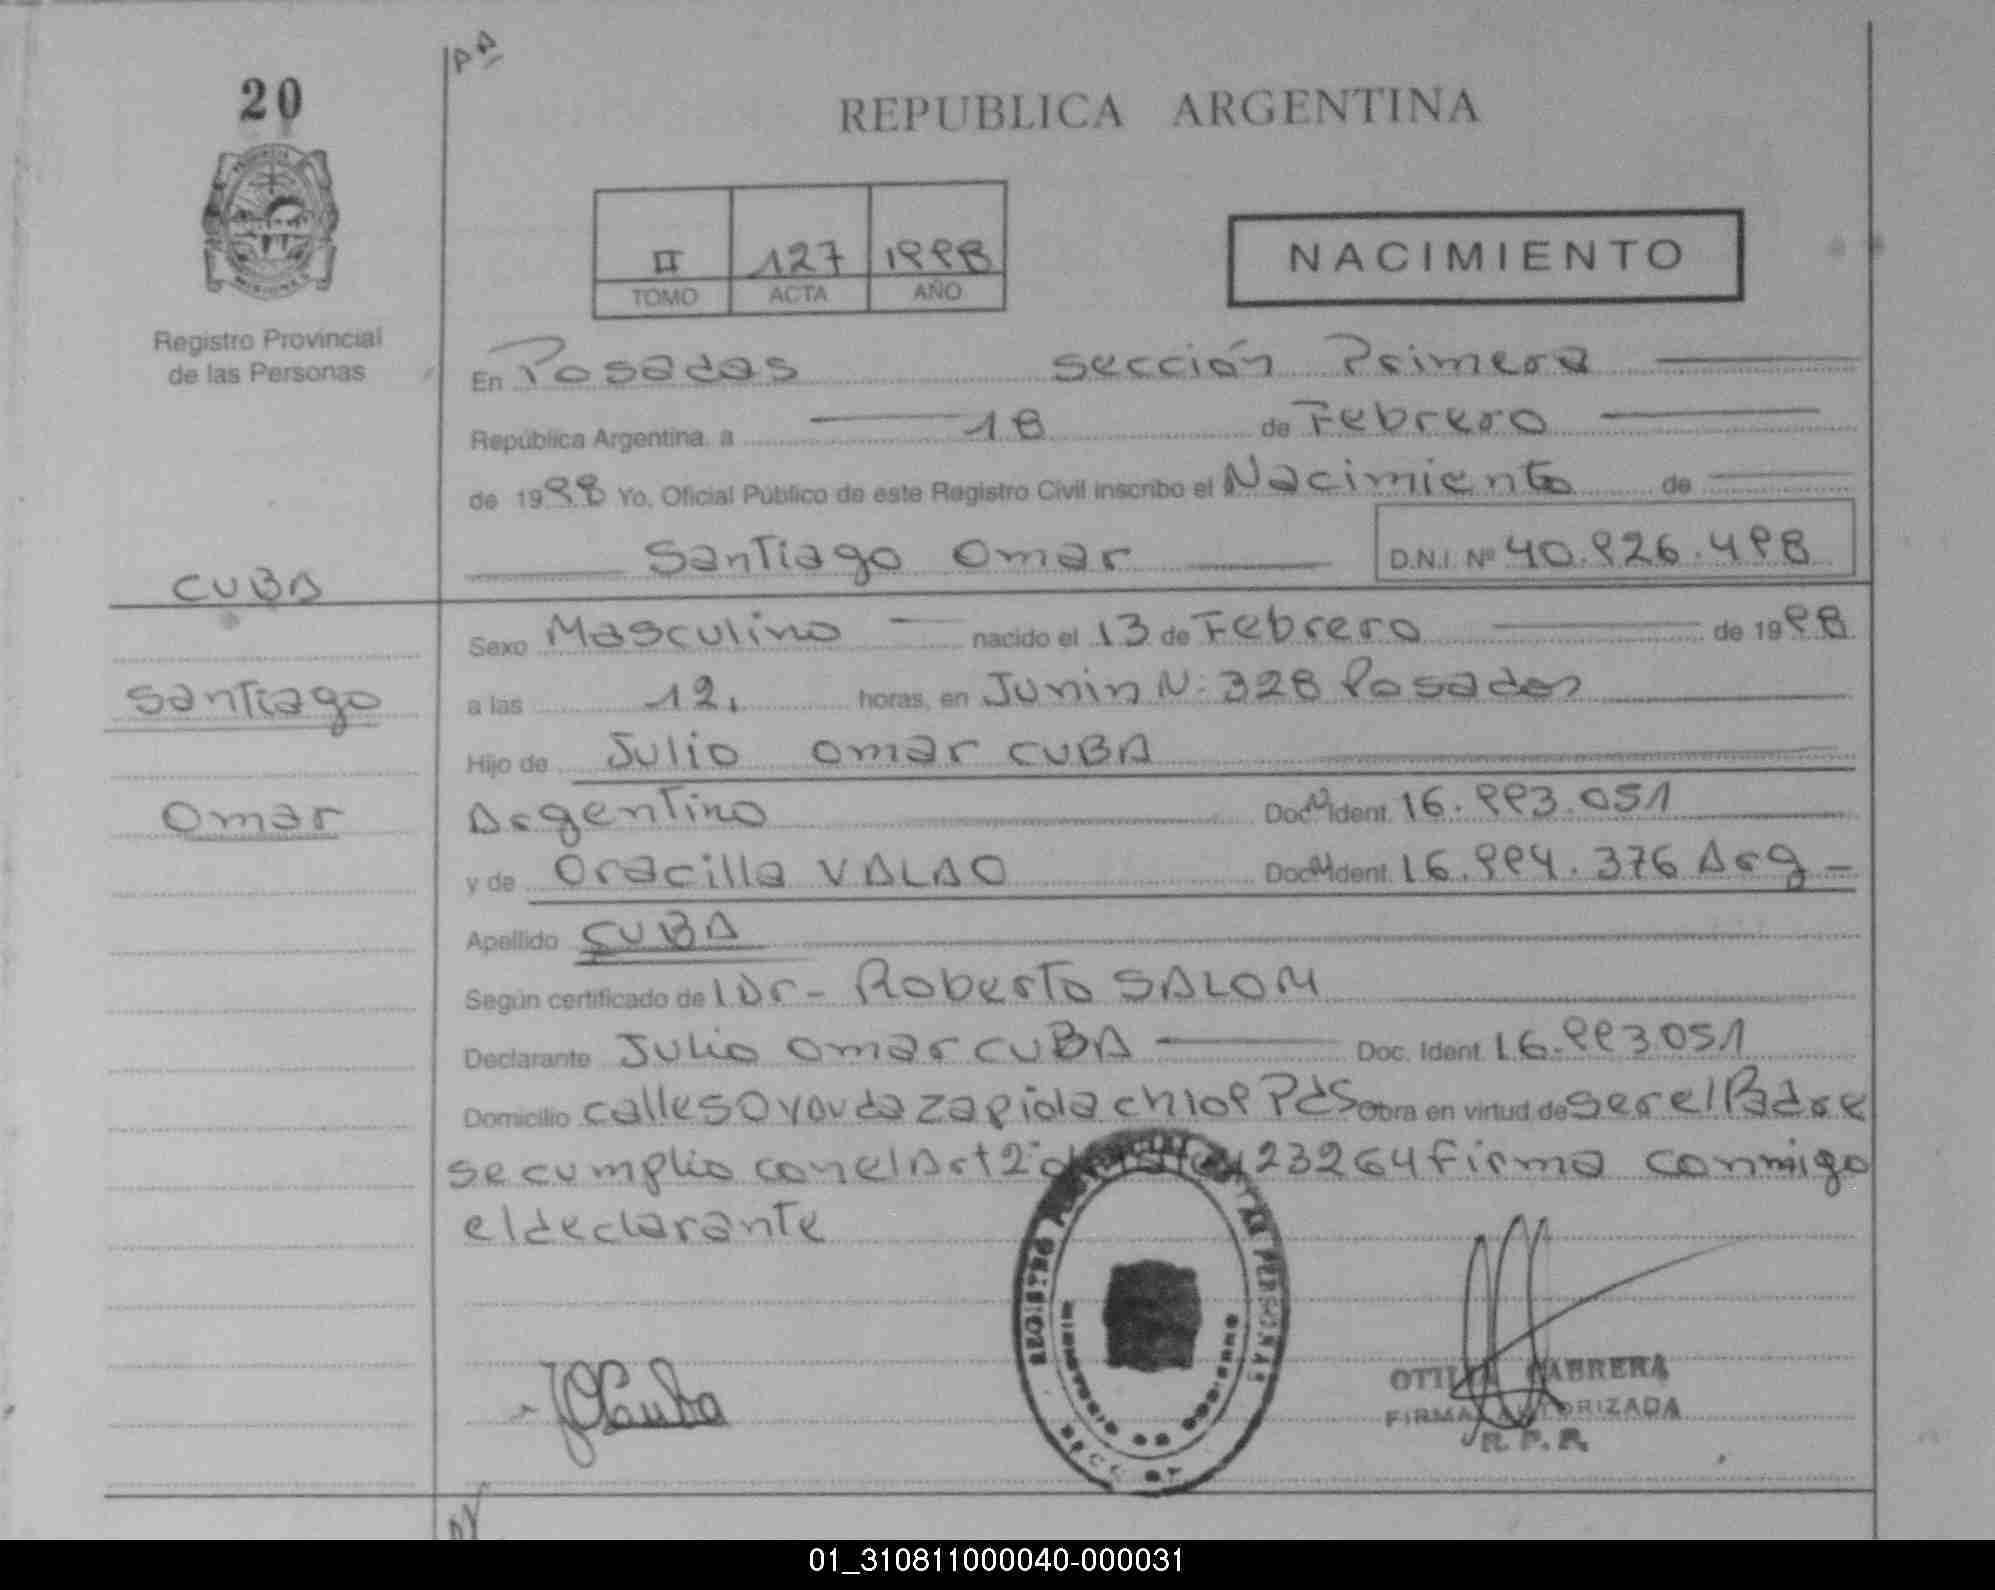 20
REPUBLICA ARGENTINA
II 127 1998
TOMO ACTA AÑO
NACIMIENTO
Registro Provincial
de las Personas
En Posadas sección Primera
República Argentina, a 18 de Febrero
de 1998 Yo, Oficial Público de este Registro Civil inscribo el Nacimiento de
Santiago Omar D.N.I. Nº 40.926.498
CUBA
Santiago
Omar
Sexo Masculino nacido el 13 de Febrero de 1998
a las 12. horas, en Junin N: 328 Posadas
Hijo de Julio Omar CUBA
Argentino Doc. Ident. 16.993.051
y de Oracilla VALAO Doc. Ident. 16.994.376 Arg
Apellido CUBA
Según certificado de l Dr - Roberto SALOM
Declarante Julio Omar CUBA Doc. Ident. 16.993051
Domicilio calle Zapiola ch 109 Pds Obra en virtud de ser el Padre
se cumplio con el Art 2º 23264 firma conmigo
el declarante
REGISTRO PERSONAS
JOCuba
CABRERA
FIRMA AUTORIZADA
R. P. P.
01_310811000040-000031